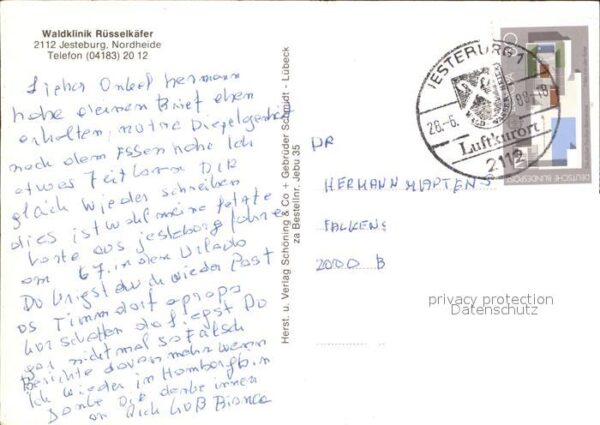 Waldklinik Rüsselkäfer
2112 Jesteburg, Nordheide
Telefon (04183) 20 12
Lieber Onkel Hermann
habe deinen Brief eben
erhalten,
nach dem Essen habe Ich
etwas Zeit Dir
gleich wieder schreiben
dies ist wohl meine letzte
Karte aus Jesteburg fahre
am 6.7. in den Urlaub
Du kriegst du wieder Post
aus Timmdorf apropo
da liegst Du
gar nicht mal so falsch
Berichte davon mehr wenn
Ich wieder in Homberg bin
Danke Dir denke innen
an Dich Gruß Bianca
Herst. u. Verlag Schöning & Co + Gebrüder Schmidt - Lübeck
za Bestellnr. Jebu 35
JESTEBURG 1
26.-6.
Luftkurort
2112
DEUTSCHE BUNDESPOST
DR
HERMANN MARTENS
FALKENS
2000 B
privacy protection
Datenschutz